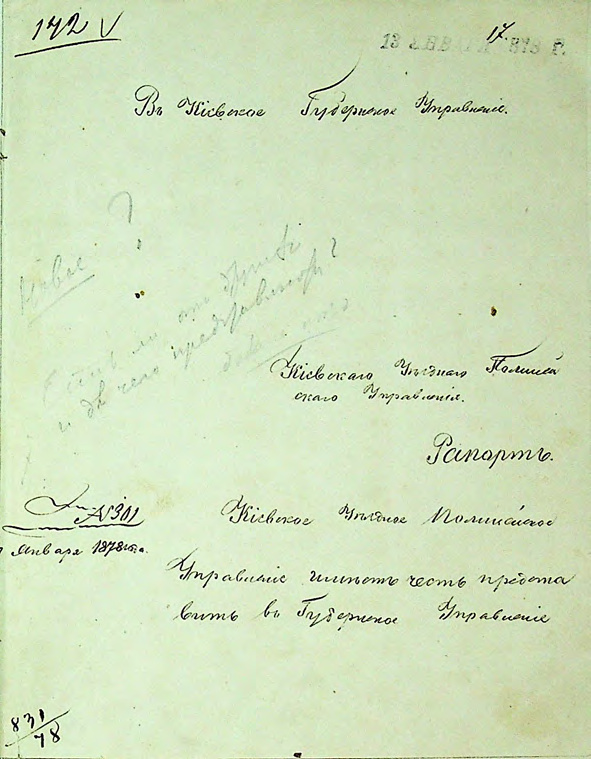 172 V
17.
13 ЯНВАРЯ 1878 Г.
Въ Кіевское Губернское Управленіе.
Новое ?
Есть ли
и для чего
Кіевскаго Уѣзднаго Полицей
скаго Управленія.
Рапортъ.
№ 301
Января 1878 года.
Кіевское Уѣздное Полицейское
Управленіе имѣетъ честь предста
вить въ Губернское Управленіе
831/78